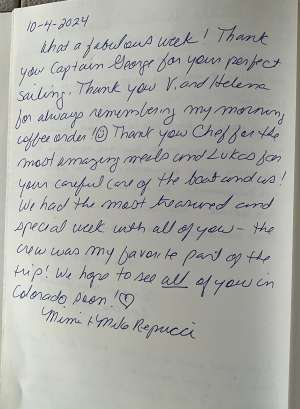 10-4-2024
What a fabulous week! Thank
you Captain George for your perfect
sailing. Thank you V. and Helena
for always remembering my morning
coffee order!☺ Thank you Chef for the
most amazing meals and Lukas for
your careful care of the boat and us!
We had the most treasured and
special week with all of you - the
crew was my favorite part of the
trip! We hope to see all of you in
Colorado soon!♡
Mimi + Milo